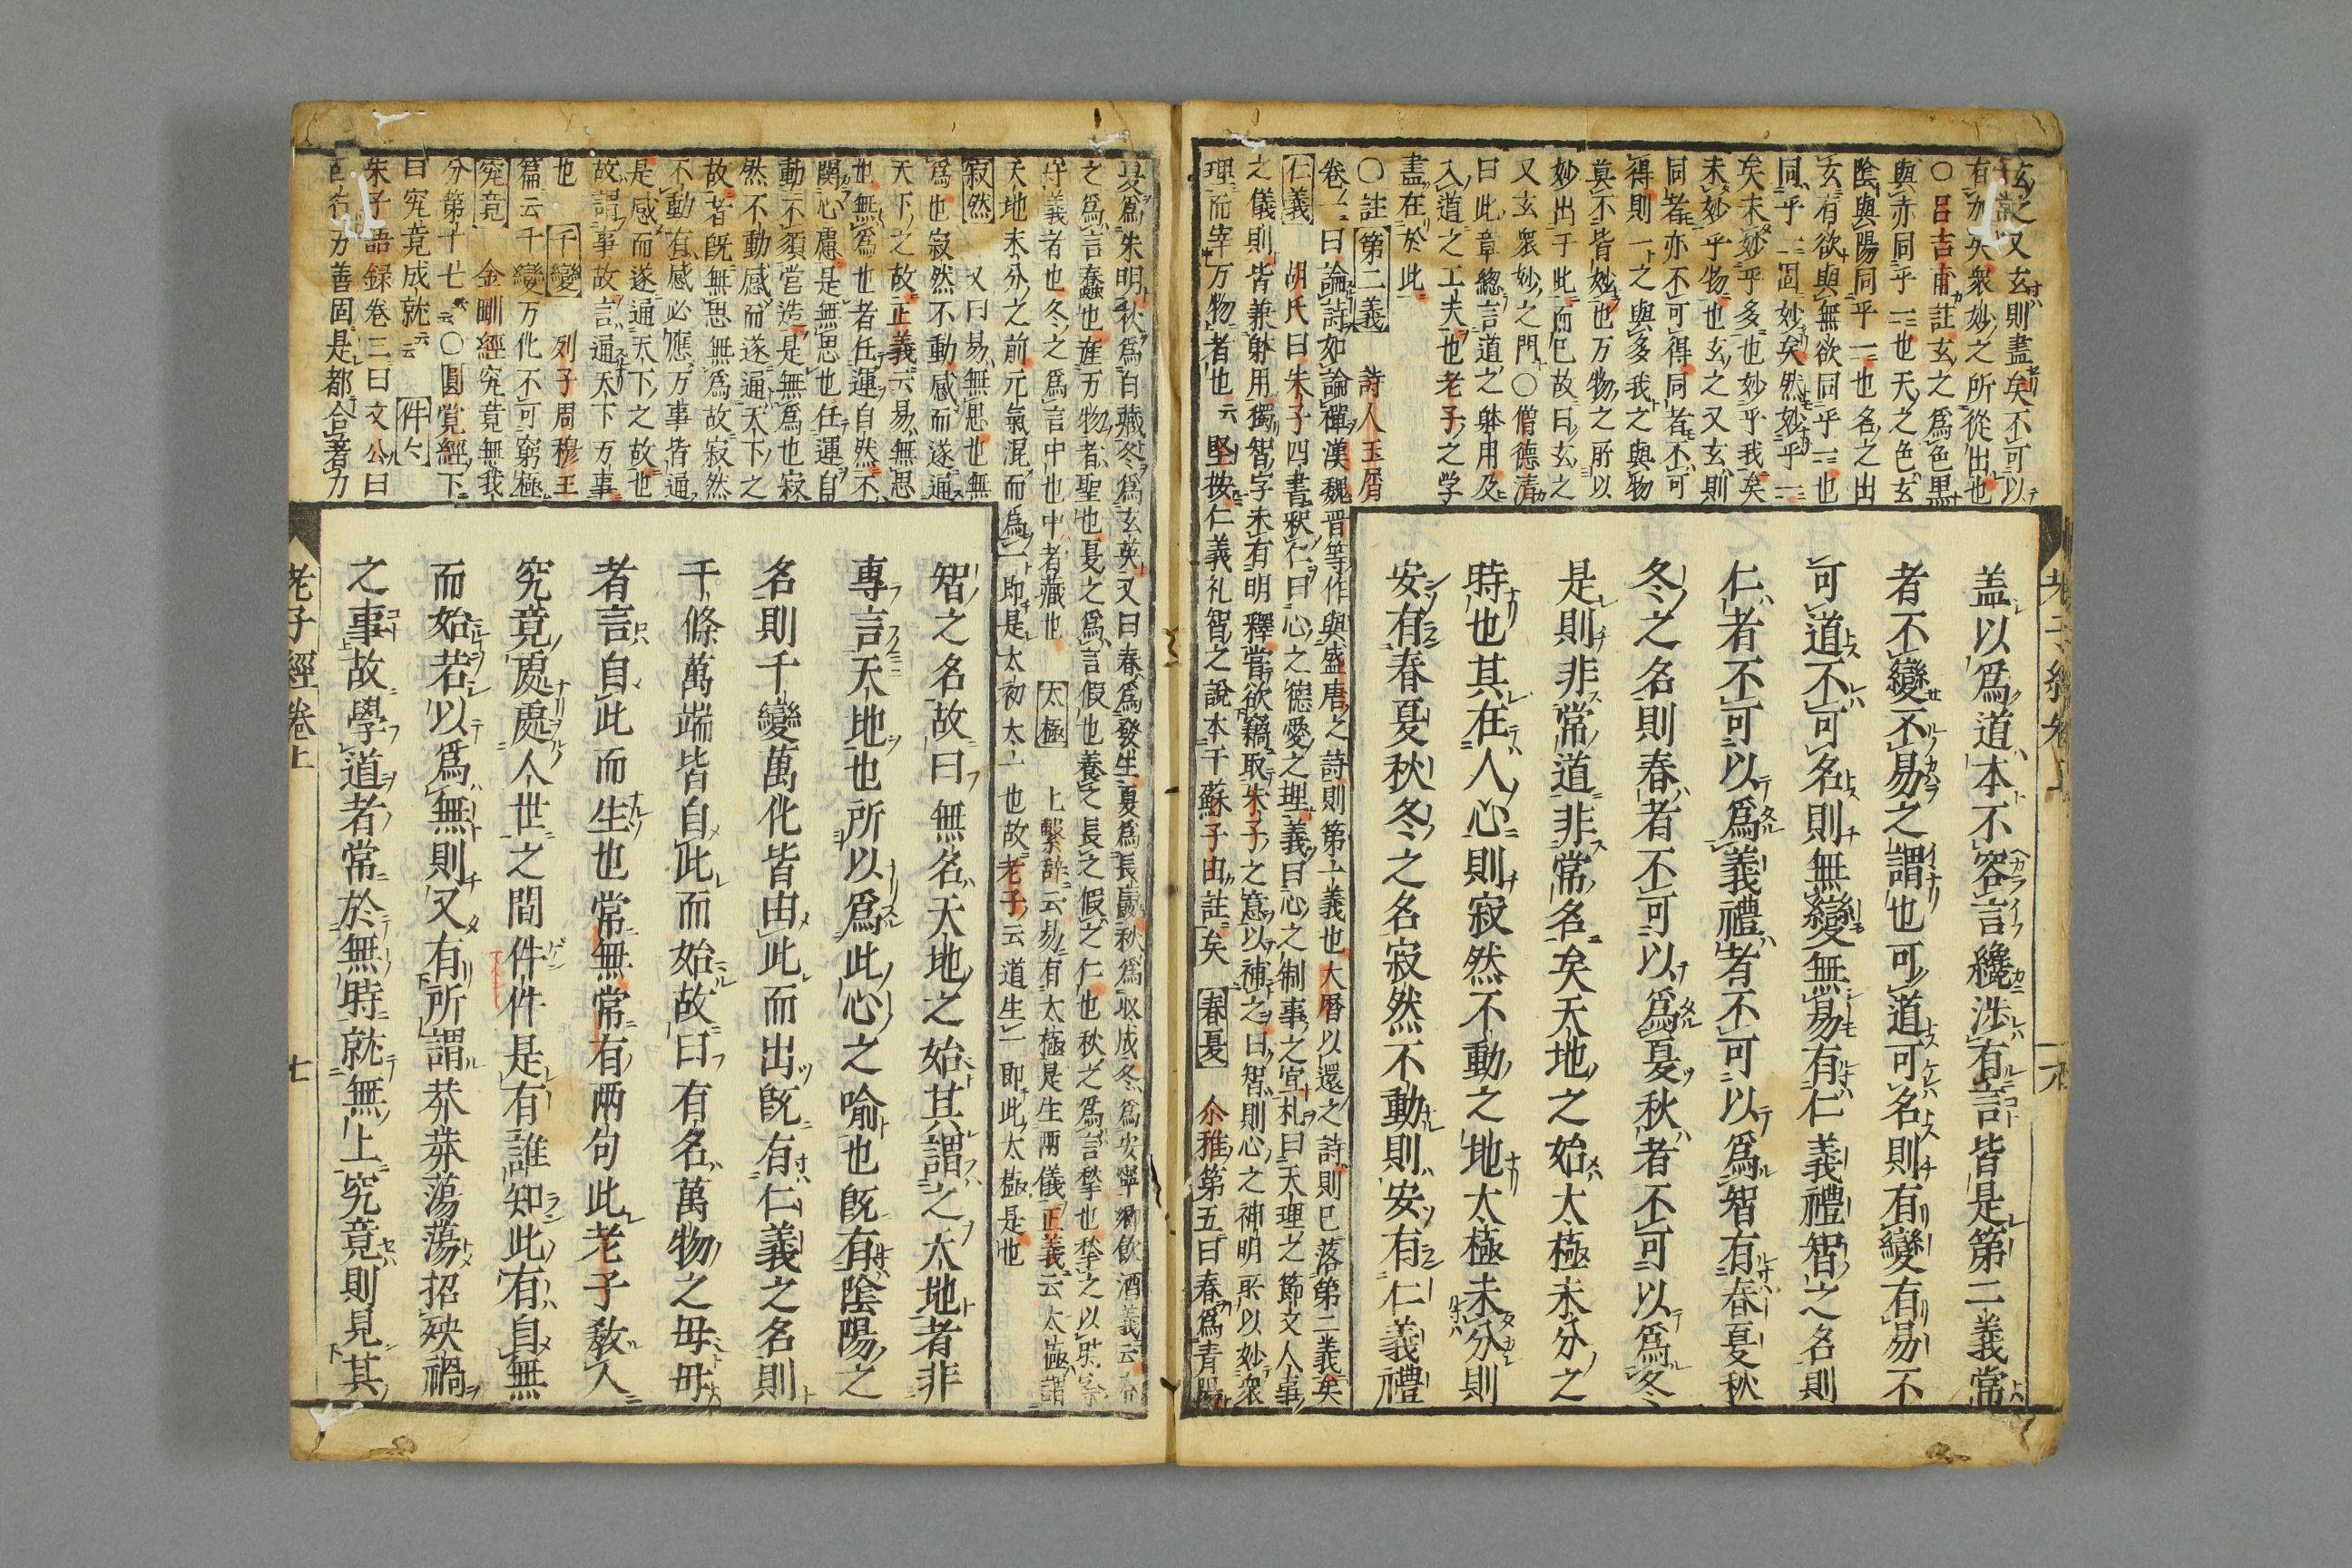 玄之又玄則盡矣不可以
有加矣衆妙之所從出也
○呂吉甫註玄之爲色黒
與亦同乎一也天之色玄
陰與陽同乎一也名之出
玄有欲與無欲同乎一也
同乎一固妙矣然妙乎一
矣未妙乎多也妙乎我矣
未妙乎物也玄之又玄則
同者亦不可得同者不可
得則一之與多我之與物
莫不皆妙也万物之所以
妙出于此而已故曰玄之
又玄衆妙之門○僧德清
曰此章緫言道之躰用及
入道之工夫也老子之学
盡在於此
○註第二義 詩人玉屑
卷之二曰論詩如論禪漢魏晋等作與盛唐之詩則第一義也大暦以還之詩則已落第二義矣
仁義 胡氏曰朱子四書釈仁曰心之德愛之理義曰心之制事之宜礼曰天理之節文人事
之儀則皆兼躰用獨智字未有明釋嘗欲竊取朱子之意以補之曰智則心之神明所以妙衆
理而宰万物者也云 堅按仁義礼智之說本于蘇子由註矣 春夏 尒雅第五曰春爲青陽
盖以爲道本不容言纔涉有言皆是第二義常
者不變不易之謂也可道可名則有變有易不
可道不可名則無變無易有仁義禮智之名則
仁者不可以爲義禮者不可以爲智有春夏秋
冬之名則春者不可以爲夏秋者不可以爲冬
是則非常道非常名矣天地之始太極未分之
時也其在人心則寂然不動之地太極未分則
安有春夏秋冬之名寂然不動則安有仁義禮
老子經卷上
六
夏爲朱明秋爲白藏冬爲玄英又曰春爲發生夏爲長嬴秋爲収成冬爲安寧 鄉飲酒義云春
之爲言蠢也産万物者聖也夏之爲言假也養之長之假之仁也秋之爲言揫也揫之以時察
守義者也冬之爲言中也中者藏也 太極 上繫辞云易有太極是生兩儀正義云太極謂
天地未分之前元氣混而爲一即是太初太一也故老子云道生一即此太極是也
寂然 又曰易無思也無
爲也寂然不動感而遂通
天下之故正義云易無思
也無爲也者任運自然不
関心慮是無思也任運自
動不須営造是無爲也寂
然不動感而遂通天下之
故者旣無思無爲故寂然
不動有感必應万事皆通
是感而遂通天下之故也
故謂事故言通天下万事
也 千變 列子周穆王
篇云千變万化不可窮極
究竟 金剛經究竟無我
分第十七云○圓覚經下
曰究竟成就云 件六
朱子語録卷三曰文公曰
百行万善固是都合著力
智之名故曰無名天地之始其謂之天地者非
專言天地也所以爲此心之喻也旣有陰陽之
名則千變萬化皆由此而出旣有仁義之名則
千條萬端皆自此而始故曰有名萬物之母母
者言自此而生也常無常有兩句此老子敎人
究竟處處人世之間件件是有誰知此有自無
而始若以爲無則又有所謂莽莽蕩蕩招殃禍
之事故學道者常於無時就無上究竟則見其
老子經卷上
七